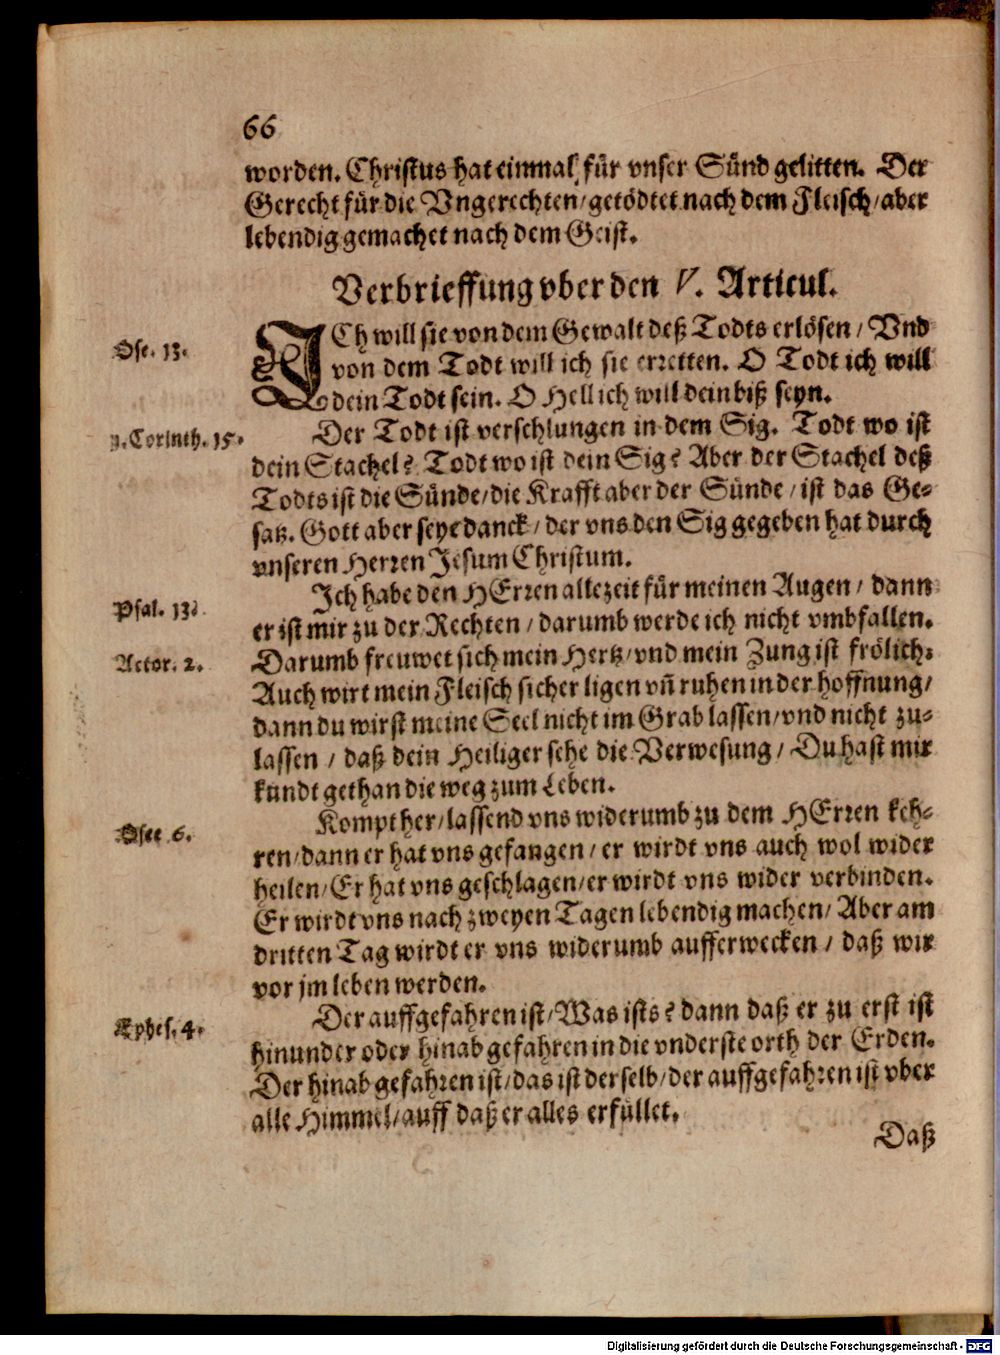 66
worden. Christus hat einmal für vnser Sünd gelitten. Der
Gerecht für die Vngerechten/getödtet nach dem Fleisch/aber
lebendig gemachet nach dem Geist.
Verbrieffung vber den V. Articul.
Ose. 13.
ICh will sie von dem Gewalt deß Todts erlösen/Vnd
von dem Todt will ich sie erretten. O Todt ich will
dein Todt sein. O Hell ich will dein biß seyn.
1. Corinth. 15.
Der Todt ist verschlungen in dem Sig. Todt wo ist
dein Stachel? Todt wo ist dein Sig? Aber der Stachel deß
Todts ist die Sünde/die Krafft aber der Sünde/ist das Ge-
satz. Gott aber seye danck/der vns den Sig gegeben hat durch
vnseren Herren Jesum Christum.
Psal. 13.
Ich habe den HErren allezeit für meinen Augen/dann
er ist mir zu der Rechten/darumb werde ich nicht vmbfallen.
Actor. 2.
Darumb freuwet sich mein Hertz/vnd mein Zung ist frölich:
Auch wirt mein Fleisch sicher ligen vñ ruhen in der hoffnung/
dann du wirst meine Seel nicht im Grab lassen/vnd nicht zu-
lassen/daß dein Heiliger sehe die Verwesung/Du hast mir
kundt gethan die weg zum Leben.
Osee 6.
Kompt her/lassend vns widerumb zu dem HErren keh-
ren/dann er hat vns gefangen/er wirdt vns auch wol wider
heilen/Er hat vns geschlagen/er wirdt vns wider verbinden.
Er wirdt vns nach zweyen Tagen lebendig machen/Aber am
dritten Tag wirdt er vns widerumb aufferwecken/daß wir
vor jm leben werden.
Ephes. 4.
Der auffgefahren ist/Was ists? dann daß er zu erst ist
hinunder oder hinab gefahren in die vnderste orth der Erden.
Der hinab gefahren ist/das ist derselb/der auffgefahren ist vber
alle Himmel/auff daß er alles erfüllet.
Daß
Digitalisierung gefördert durch die Deutsche Forschungsgemeinschaft - DFG